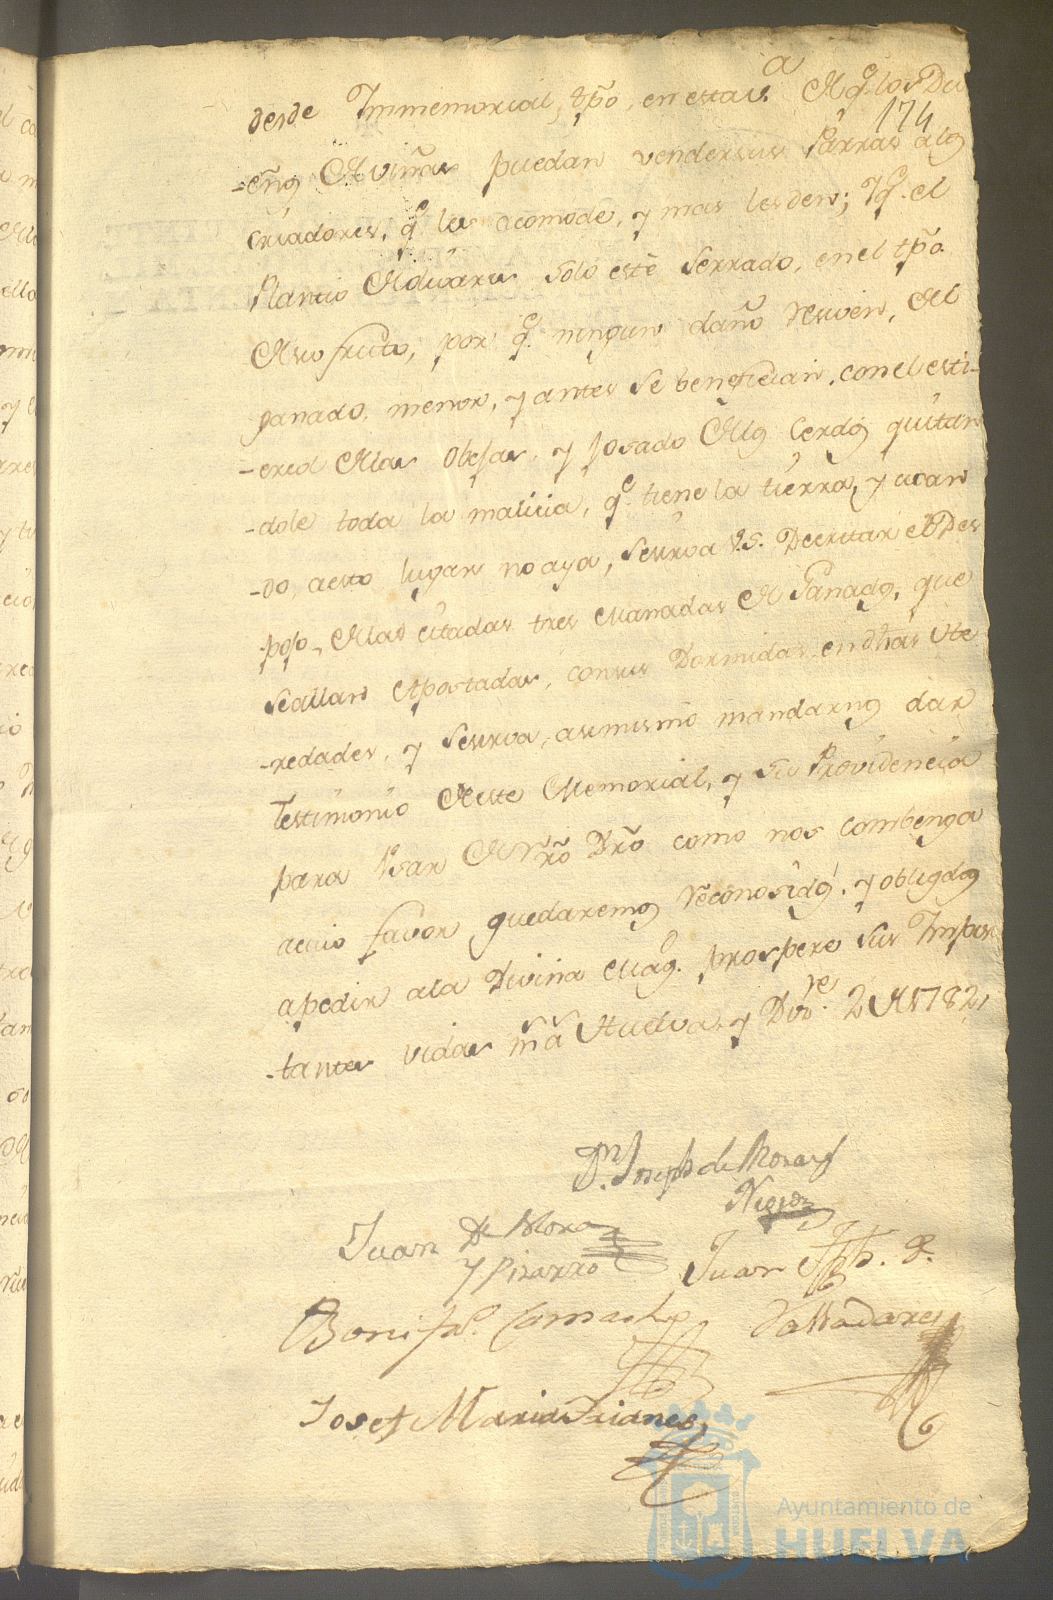 desde Immemorial tpõ, en esta v.ª de q.e los Du
174
-eños de viñas puedan vender sus Parras a los
criadores, q.e les acomode, y mas les den; Y q.e el
Plantio de olivares solo esté serrado, en el tpõ
de su fruto, por q.e ningun daño resiven, del
ganado menor, y antes se benefician, con el esti-
-ercol de las obejas, y josado de los cerdos quitan
-dole toda la malicia, q.e tiene la tierra, y acan
-do, a esto lugar no aya, se sirva V.S. Decretar el Des
pojo, de las citadas tres Manadas de Ganado, que
se allan Apostadas, con sus Dormidas en dhas He
-redades, y se sirva, asimismo mandarnos dar
Testimonio de este Memorial, y su Providencia
para Usar de Nr̃o Dr̃o como nos combenga
a cuio favor quedaremos reconosidos, y obligdos
a pedir a la Divina Mag.d prospere sus Impor
-tantes vidas m.s a.s Huelva, y Dizre 2 de 1782,
Dn. Joseph de Mora y
Negron
Juan De Mora
y Pizarro
Juan Jph. P.
Valladares
Bonifa.o Camacho
Josef Maria Trianes
Ayuntamiento de
HUELVA